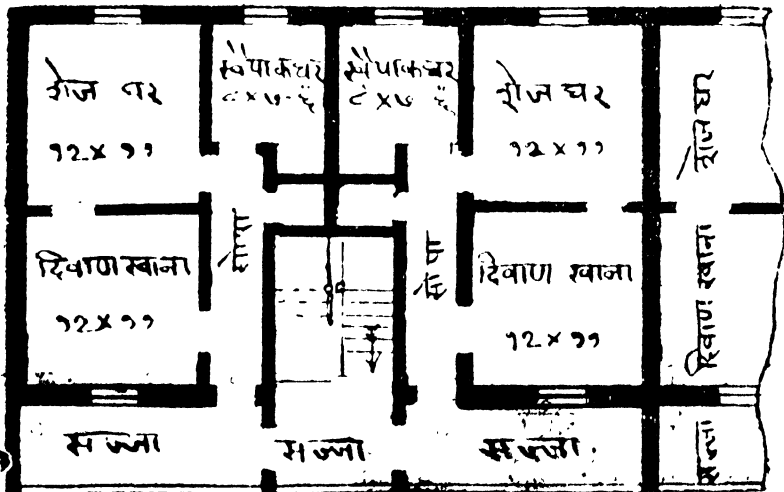 शेज घर
१२ × ११
स्वैपाकघर
८ × ७-६
स्वैपाकघर
८ × ७-६
शेज घर
१२ × ११
शेज घर
दिवाणखाना
१२ × ११
सोपा
सोपा
दिवाण खाना
१२ × ११
दिवाण खाना
सज्जा
सज्जा
सज्जा
सज्जा